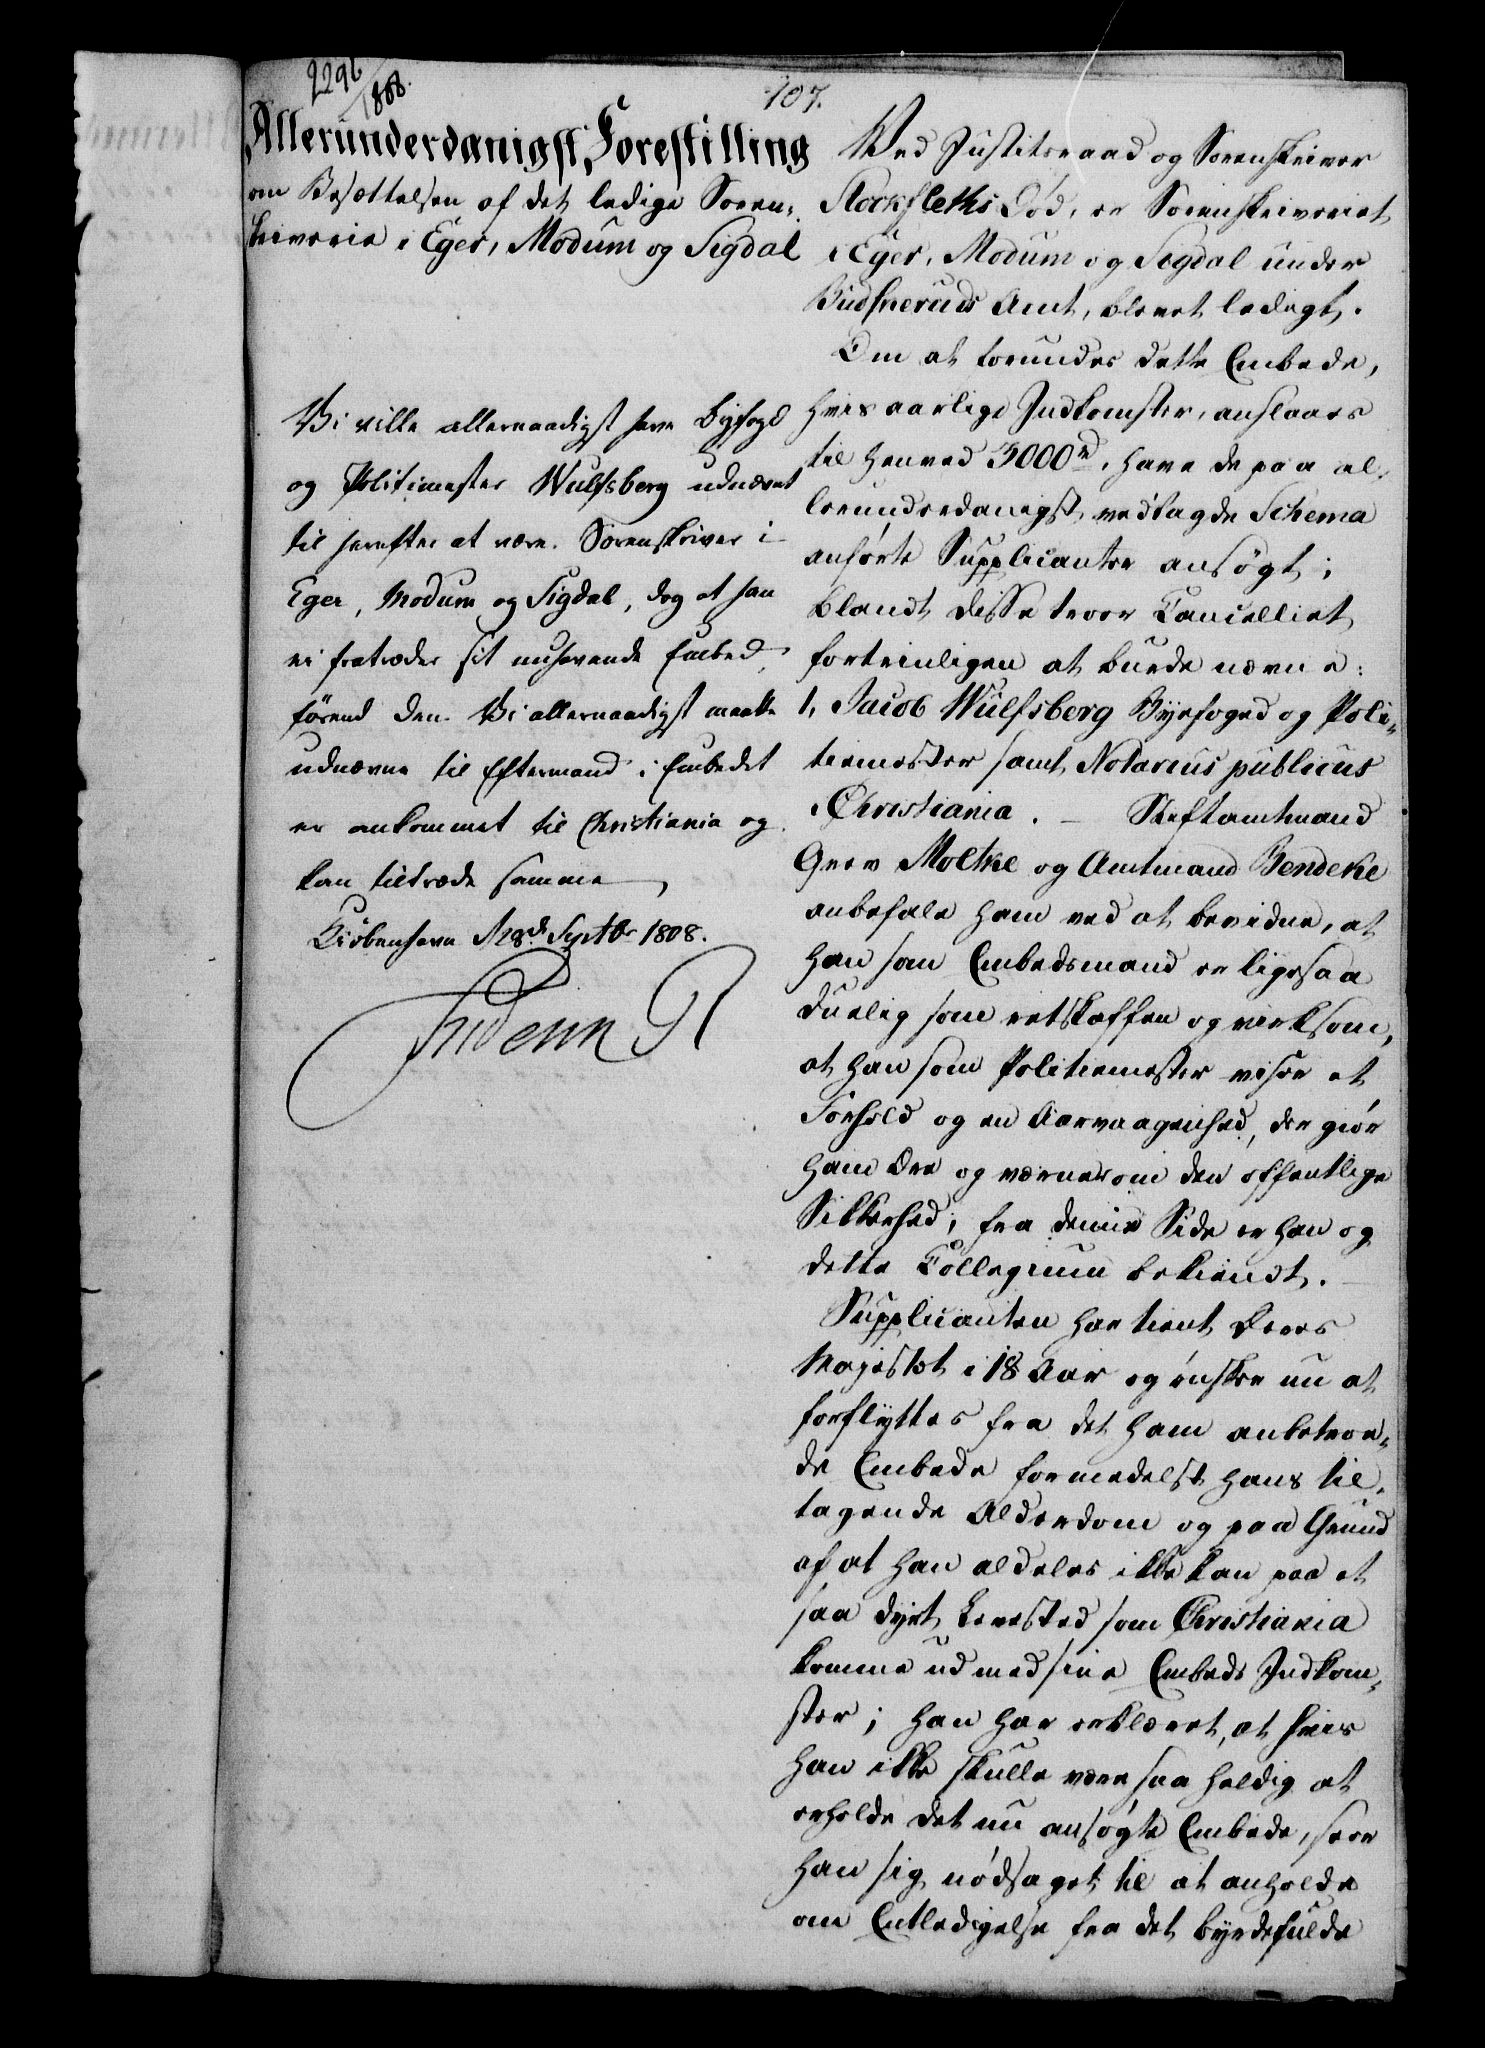 2296/1808.
107.
Allerunderdanigst Forestilling
om Besættelsen af det ledige Soren-
skriverie i Eger, Modum og Sigdal
Vi ville allernaadigst have Byfogd
og Politimester Wulfsberg udnævnt
til herefter at være Sorenskriver i
Eger, Modum og Sigdal, dog at han
ei fratræder sit nuhavende Embed,
førend den Vi allernaadigst maatte
udnævne til Eftermand i Embedet
er ankommet til Christiania og
kan tiltræde samme,
Kiøbenhavn Septbr 1808.
Friderich R
Ved Justitsraad og Sorenskriver
Stockfleths Død, er Sorenskriveriet
i Eger, Modum og Sigdal under
Budskeruds Amt, blevet ledigt.
Om at forundes dette Embede,
hvis aarlige Indkomster, anslaaes
til henved 3000 rd, have de paa al-
lerunderdanigst vedlagde Schema
anførte Supplicanter ansøgt;
blandt disse troer Cancelliet
fortrinligen at burde nævne:
1, Jacob Wulfsberg Byefoged og Poli-
tiemester samt Notarius publicus
i Christiania. - Stiftamtmand
Grev Moltke og Amtmand Bendeke
anbefale ham ved at bevidne, at
han som Embedsmand er ligesaa
duelig som retskaffen og virksom,
at han som Politiemester viser et
Forhold og en Aarvaagenhed, der giør
ham Ære og værner om den offentlige
Sikkerhed; fra denne Side er han og
dette Collegium bekiendt.
Supplicanten har tient Deres
Majestæt i 18 Aar og ønsker nu at
forflyttes fra det ham anbetroe-
de Embede formedelst hans til-
tagende Alderdom og paa Grund
af at han aldeles ikke kan paa et
saa dyrt Levested som Christiania
komme ud med sine Embeds Indkom-
ster; han har erklæret, at hvis
han ikke skulle være saa heldig at
erholde det nu ansøgte Embede, seer
han sig nødsaget til at anholde
om Entledigelse fra det byrdefulde